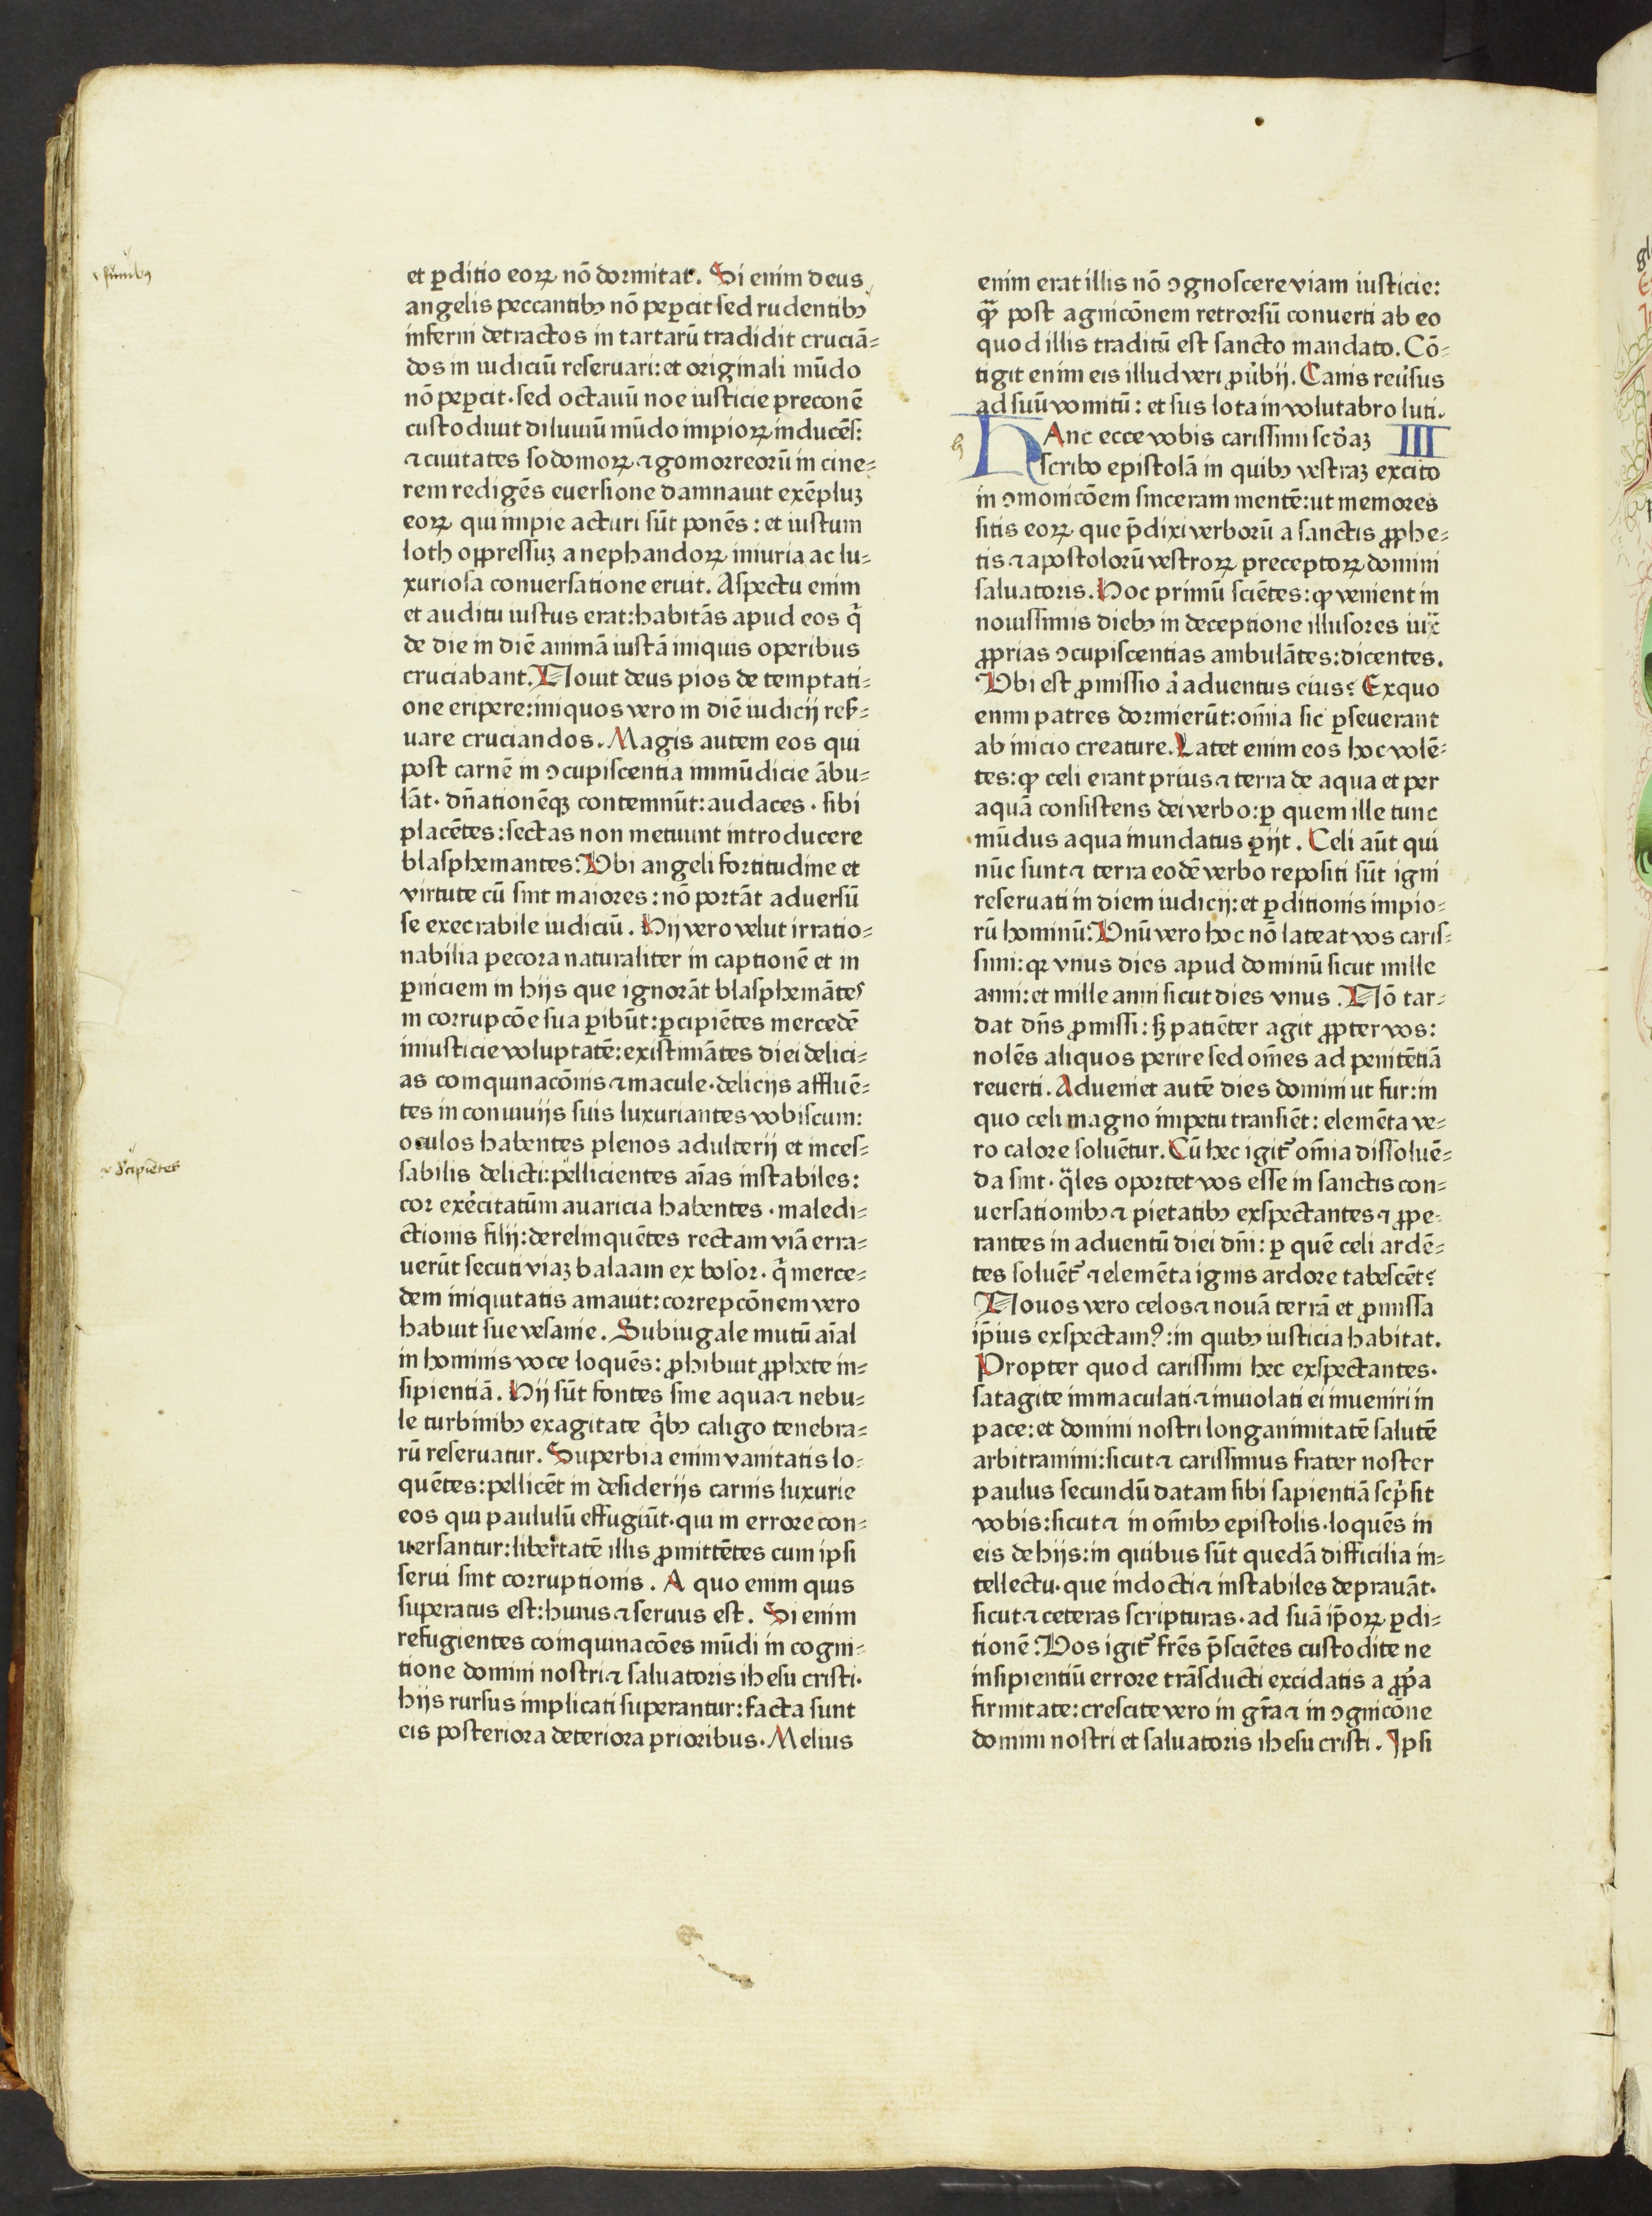 funibꝰ
et ꝑditio eoꝝ nō dormitat. Si enim deus
angelis peccantibꝫ nō peꝑcit sed rudentibꝫ
inferni detractos in tartarū tradidit cruciā⸗
dos in iudiciū reseruari: et originali mūdo
nō peꝑcit· sed octauū noe iusticie preconē
custodiuit diluuiū mūdo impioꝝ inducēs:
⁊ ciuitates sodomoꝝ ⁊ gomorreorū in cine⸗
rem redigēs euersione damnauit exēpluꝫ
eoꝝ qui impie acturi sūt ponēs: et iustum
loth oppressuꝫ a nephandoꝝ iniuria ac lu⸗
xuriosa conuersatione eruit. Aspectu enim
et auditu iustus erat: habitās apud eos q̄
de die in diē animā iustā iniquis operibus
cruciabant. Nouit deus pios de temptati⸗
one eripere: iniquos vero in diē iudicij reẜ⸗
uare cruciandos. Magis autem eos qui
post carnē in ↄcupiscentia immūdicie ābu⸗
lāt· dn̄ationēqꝫ contemnūt: audaces· sibi
placētes: sectas non metuunt introducere
blasphemantes: Vbi angeli fortitudine et
virtute cū sint maiores: nō portāt aduersū
se execrabile iudiciū. Hij vero velut irratio⸗
nabilia pecora naturaliter in captionē et in
ꝑniciem in hijs que ignorāt blasphemātes
in corrupcōe sua ꝑibūt: ꝑcipiētes mercedē
iniusticie voluptatē: existimātes diei delici⸗
as coinquinacōnis ⁊ macule· delicijs affluē⸗
tes in conuiuijs suis luxuriantes vobiscum:
oculos habentes plenos adulterij et inces⸗
sabilis delicti: pellicientes aīas instabiles:
cor exercitatum auaricia habentes· maledi⸗
ctionis filij: derelinquētes rectam viā erra⸗
uerūt secuti viaꝫ balaam ex bosor· q̄ merce⸗
dem iniquitatis amauit: correpcōnem vero
habuit sue vesanie. Subiugale mutū aīal
in hominis voce loquēs: ꝓhibuit ꝓphete in⸗
sipientiā. Hij sūt fontes sine aqua ⁊ nebu⸗
le turbinibꝫ exagitate q̄bꝫ caligo tenebra⸗
rū reseruatur. Superbia enim vanitatis lo⸗
quētes: pellicēt in desiderijs carnis luxurie
eos qui paululū effugiūt· qui in errore con⸗
uersantur: libertatē illis ꝓmittētes cum ipsi
serui sint corruptionis. A quo enim quis
superatus est: huius ⁊ seruus est. Si enim
refugientes coinquinacōes mūdi in cogni⸗
tione domini nostri ⁊ saluatoris ihesu cristi·
hijs rursus implicati superantur: facta sunt
eis posteriora deteriora prioribus. Melius
enim erat illis nō ↄgnoscere viam iusticie:
qᷓꝫ post agnicōnem retrorsū conuerti ab eo
quod illis traditū est sancto mandato. Cō⸗
tigit enim eis illud veri ꝓūbij. Canis reuͥsus
ad suū vomitū: et sus lota in volutabro luti.
HAnc ecce vobis carissimi scd̄aꝫ III
scribo epistolā in quibꝫ vestraꝫ excito
in ↄmonicōem sinceram mentē: ut memores
sitis eoꝝ que p̄dixi verborū a sanctis ꝓphe⸗
tis ⁊ apostolorū vestroꝝ preceptoꝝ domini
saluatoris. Hoc primū sciētes: ꝙ venient in
nouissimis diebꝫ in deceptione illusores iux̄
ꝓprias ↄcupiscentias ambulātes: dicentes.
Vbi est ꝓmissio aͥ aduentus eius? Exquo
enim patres dormierūt: om̄ia sic ꝑseuerant
ab inicio creature. Latet enim eos hoc volē⸗
tes: ꝙ celi erant prius ⁊ terra de aqua et per
aquā consistens dei verbo: ꝑ quem ille tunc
mūdus aqua inundatus ꝑijt. Celi aūt qui
nūc sunt ⁊ terra eodē verbo repositi sūt igni
reseruati in diem iudicij: et ꝑditionis impio⸗
rū hominū: Vnū vero hoc nō lateat vos caris⸗
simi: qꝛ vnus dies apud dominū sicut mille
anni: et mille anni sicut dies vnus. Nō tar⸗
dat dn̄s ꝓmissi: sꝫ patiēter agit ꝓpter vos:
nolēs aliquos perire sed om̄es ad penitētiā
reuerti. Adueniet autē dies domini ut fur: in
quo celi magno impetu transiēt: elemēta ve⸗
ro calore soluētur. Cū hec igit᷑ om̄ia dissoluē⸗
da sint· q̄les oportet vos esse in sanctis con⸗
uersationibꝫ ⁊ pietatibꝫ exspectantes ⁊ ꝓpe⸗
rantes in aduentū diei dn̄i: ꝑ quē celi ardē⸗
tes soluēt᷑ ⁊ elemēta ignis ardore tabescēt?
Nouos vero celos ⁊ nouā terrā et ꝓmissa
ip̄ius exspectamꝰ: in quibꝫ iusticia habitat.
Propter quod carissimi hec exspectantes·
satagite immaculati ⁊ inuiolati ei inueniri in
pace: et domini nostri longanimitatē salutē
arbitramini: sicut ⁊ carissimus frater noster
paulus secundū datam sibi sapientiā scp̄sit
vobis: sicut ⁊ in om̄ibꝫ epistolis· loquēs in
eis de hijs: in quibus sūt quedā difficilia in⸗
tellectu· que indocti ⁊ instabiles deprauāt·
sicut ⁊ ceteras scripturas· ad suā ip̄oꝝ ꝑdi⸗
tionē: Vos igit᷑ frēs p̄sciētes custodite ne
insipientiū errore trāsducti excidatis a ꝓp̄a
firmitate: crescite vero in gr̄a ⁊ in ↄgnicōne
domini nostri et saluatoris ihesu cristi. Ipsi